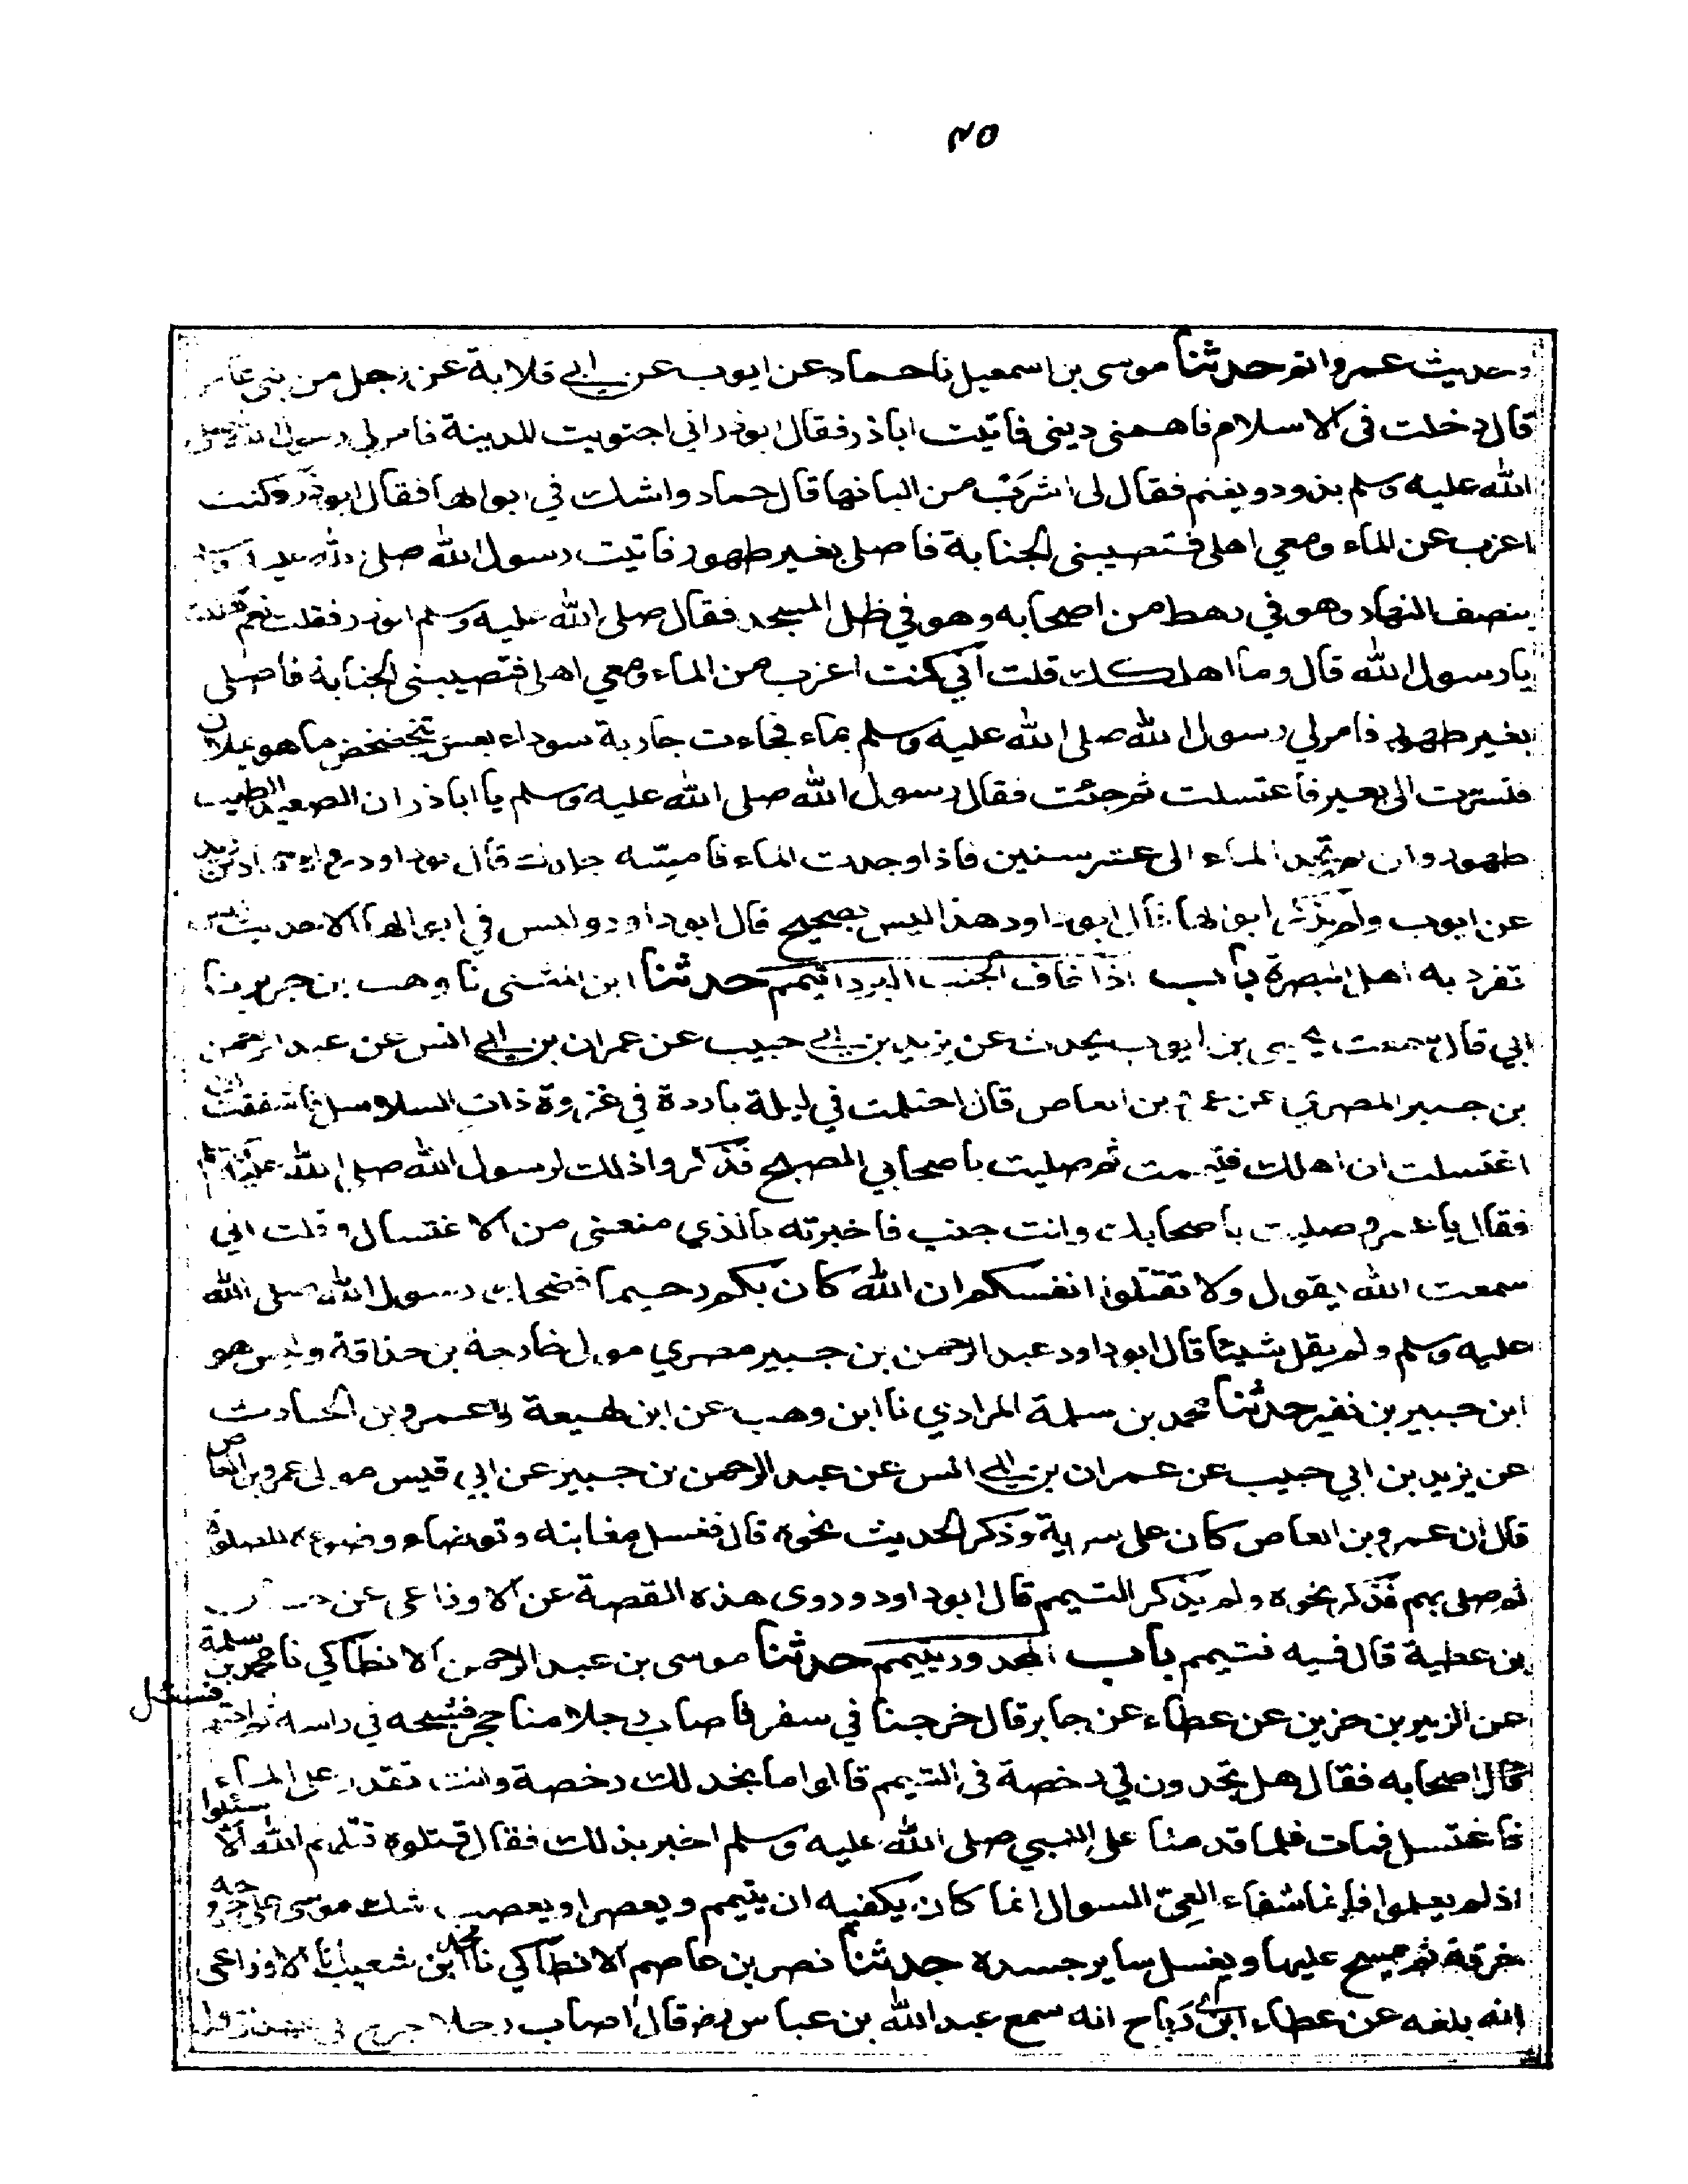 ٤٥
وحديث عمرو اتم حدثنا موسى بن اسمعيل نا حماد عن ايوب عن ابي قلابة عن رجل من بني عامر
قال دخلت في الاسلام فاهمني ديني فاتيت اباذر فقال ابوذر اني اجتويت المدينة فامر لي رسول الله صلى
الله عليه وسلم بذود وبغنم فقال لي اشرب من البانها قال حماد واشك في ابوالها فقال ابوذر وكنت
اعزب عن الماء ومعي اهلي فتصيبني الجنابة فاصلي بغير طهور فاتيت رسول الله صلى الله عليه وسلم
بنصف النهار وهو في رهط من اصحابه وهو في ظل المسجد فقال صلى الله عليه وسلم ابوذر فقلت نعم هلكت
يا رسول الله قال وما اهلكك قلت اني كنت اعزب من الماء ومعي اهلي فتصيبني الجنابة فاصلي
بغير طهور فامر لي رسول الله صلى الله عليه وسلم بماء فجاءت جارية سوداء بعس يتخضخض ما هو بملان
فتسترت الى بعير فاغتسلت ثم جئت فقال رسول الله صلى الله عليه وسلم يا اباذر ان الصعيد الطيب
طهور وان لم تجد الماء الى عشر سنين فاذا وجدت الماء فامسه جلدك قال ابو داود رواه حماد بن زيد
عن ايوب ولم يذكر ابوالها قال ابو داود هذا ليس بصحيح قال ابو داود وليس في ابوالها الا حديث انس
تفرد به اهل البصرة باب اذا خاف الجنب البرد اتيمم حدثنا ابن المثنى نا وهب بن جرير نا
ابي قال سمعت يحيى بن ايوب يحدث عن يزيد بن ابي حبيب عن عمران بن ابي انس عن عبد الرحمن
بن جبير المصري عن عمرو بن العاص قال احتلمت في ليلة باردة في غزوة ذات السلاسل فاشفقت ان
اغتسلت ان اهلك فتيممت ثم صليت باصحابي الصبح فذكروا ذلك لرسول الله صلى الله عليه وسلم
فقال يا عمرو صليت باصحابك وانت جنب فاخبرته بالذي منعني من الاغتسال وقلت اني
سمعت الله يقول ولا تقتلوا انفسكم ان الله كان بكم رحيما فضحك رسول الله صلى الله
عليه وسلم ولم يقل شيئا قال ابو داود عبد الرحمن بن جبير مصري مولى خارجة بن حذافة وليس هو
ابن جبير بن نفير حدثنا محمد بن سلمة المرادي نا ابن وهب عن ابن لهيعة وعمرو بن الحارث
عن يزيد بن ابي حبيب عن عمران بن ابي انس عن عبد الرحمن بن جبير عن ابي قيس مولى عمرو بن العاص
قال ان عمرو بن العاص كان على سرية وذكر الحديث نحوه قال فغسل مغابنه وتوضاء وضوءه للصلوة
ثم صلى بهم فذكر نحوه ولم يذكر التيمم قال ابو داود وروى هذه القصة عن الاوزاعي عن حسان
بن عطية قال فيه فتيمم باب المجدور يتيمم حدثنا موسى بن عبد الرحمن الانطاكي نا محمد بن سلمة
عن الزبير بن خريق عن عطاء عن جابر قال خرجنا في سفر فاصاب رجلا منا حجر فشجه في راسه ثم احتلم
فسئل
اصحابه فقال هل تجدون لي رخصة في التيمم قالوا ما نجد لك رخصة وانت تقدر على الماء
فاغتسل فمات فلما قدمنا على النبي صلى الله عليه وسلم اخبر بذلك فقال قتلوه قتلهم الله الا سئلوا
اذ لم يعلموا فانما شفاء العي السوال انما كان يكفيه ان يتيمم ويعصر او يعصب شك موسى على جرحه
خرقة ثم يمسح عليها ويغسل ساير جسده حدثنا نصر بن عاصم الانطاكي نا محمد بن شعيب انا الاوزاعي
انه بلغه عن عطاء ابن ابي رباح انه سمع عبد الله بن عباس رض قال اصاب رجلا جرح في